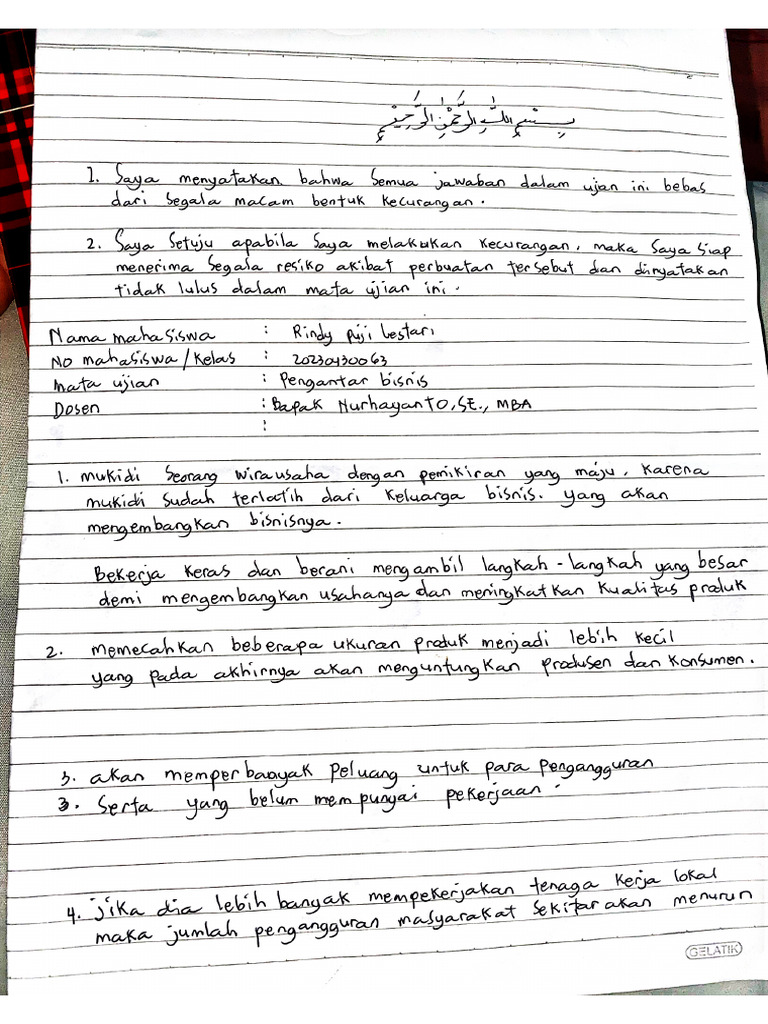 بِسْمِ اللهِ الرَّحْمٰنِ الرَّحِيْمِ
1. Saya menyatakan bahwa semua jawaban dalam ujian ini bebas
dari segala macam bentuk kecurangan.
2. Saya setuju apabila saya melakukan kecurangan, maka saya siap
menerima segala resiko akibat perbuatan tersebut dan dinyatakan
tidak lulus dalam mata ujian ini.
Nama mahasiswa : Rindy Puji Lestari
No mahasiswa/kelas : 20230430063
Mata ujian : Pengantar bisnis
Dosen : Bapak Nurhayanto, SE., MBA
:
1. mukidi seorang wirausaha dengan pemikiran yang maju, karena
mukidi sudah terlatih dari keluarga bisnis. yang akan
mengembangkan bisnisnya.
Bekerja keras dan berani mengambil langkah-langkah yang besar
demi mengembangkan usahanya dan meningkatkan kualitas produk
2. memecahkan beberapa ukuran produk menjadi lebih kecil
yang pada akhirnya akan menguntungkan produsen dan konsumen.
3. akan memperbanyak peluang untuk para pengangguran
3. serta yang belum mempunyai pekerjaan.
4. jika dia lebih banyak mempekerjakan tenaga kerja lokal
maka jumlah pengangguran masyarakat sekitar akan menurun
GELATIK